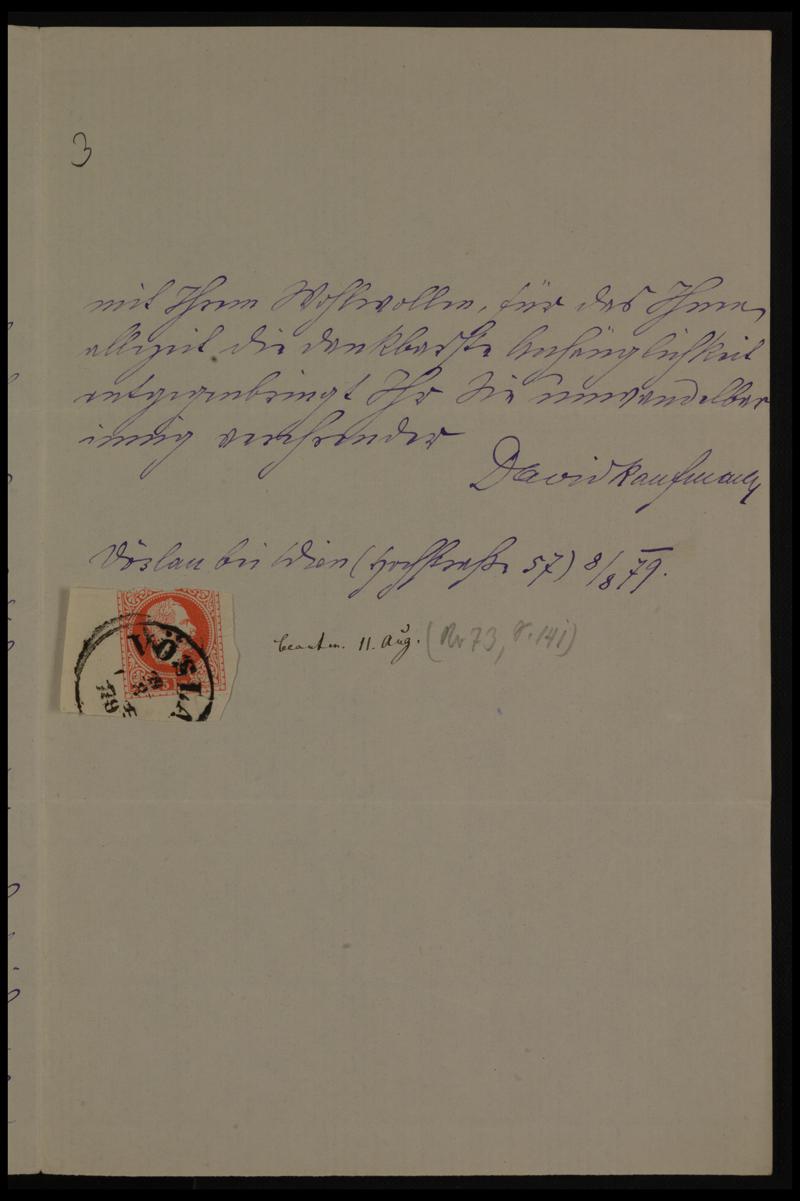 3
mit Ihrem Wohlwollen, für das Ihnen
allezeit die dankbarste Anhänglichkeit
entgegenbringt Ihr Sie unwandelbar
innig verehrender
David Kaufmann
Vöslau bei Wien (Hochstraße 57) 8/8 79.
beantw. 11. Aug. (Nr 73, S. 141)
VÖSLA
79